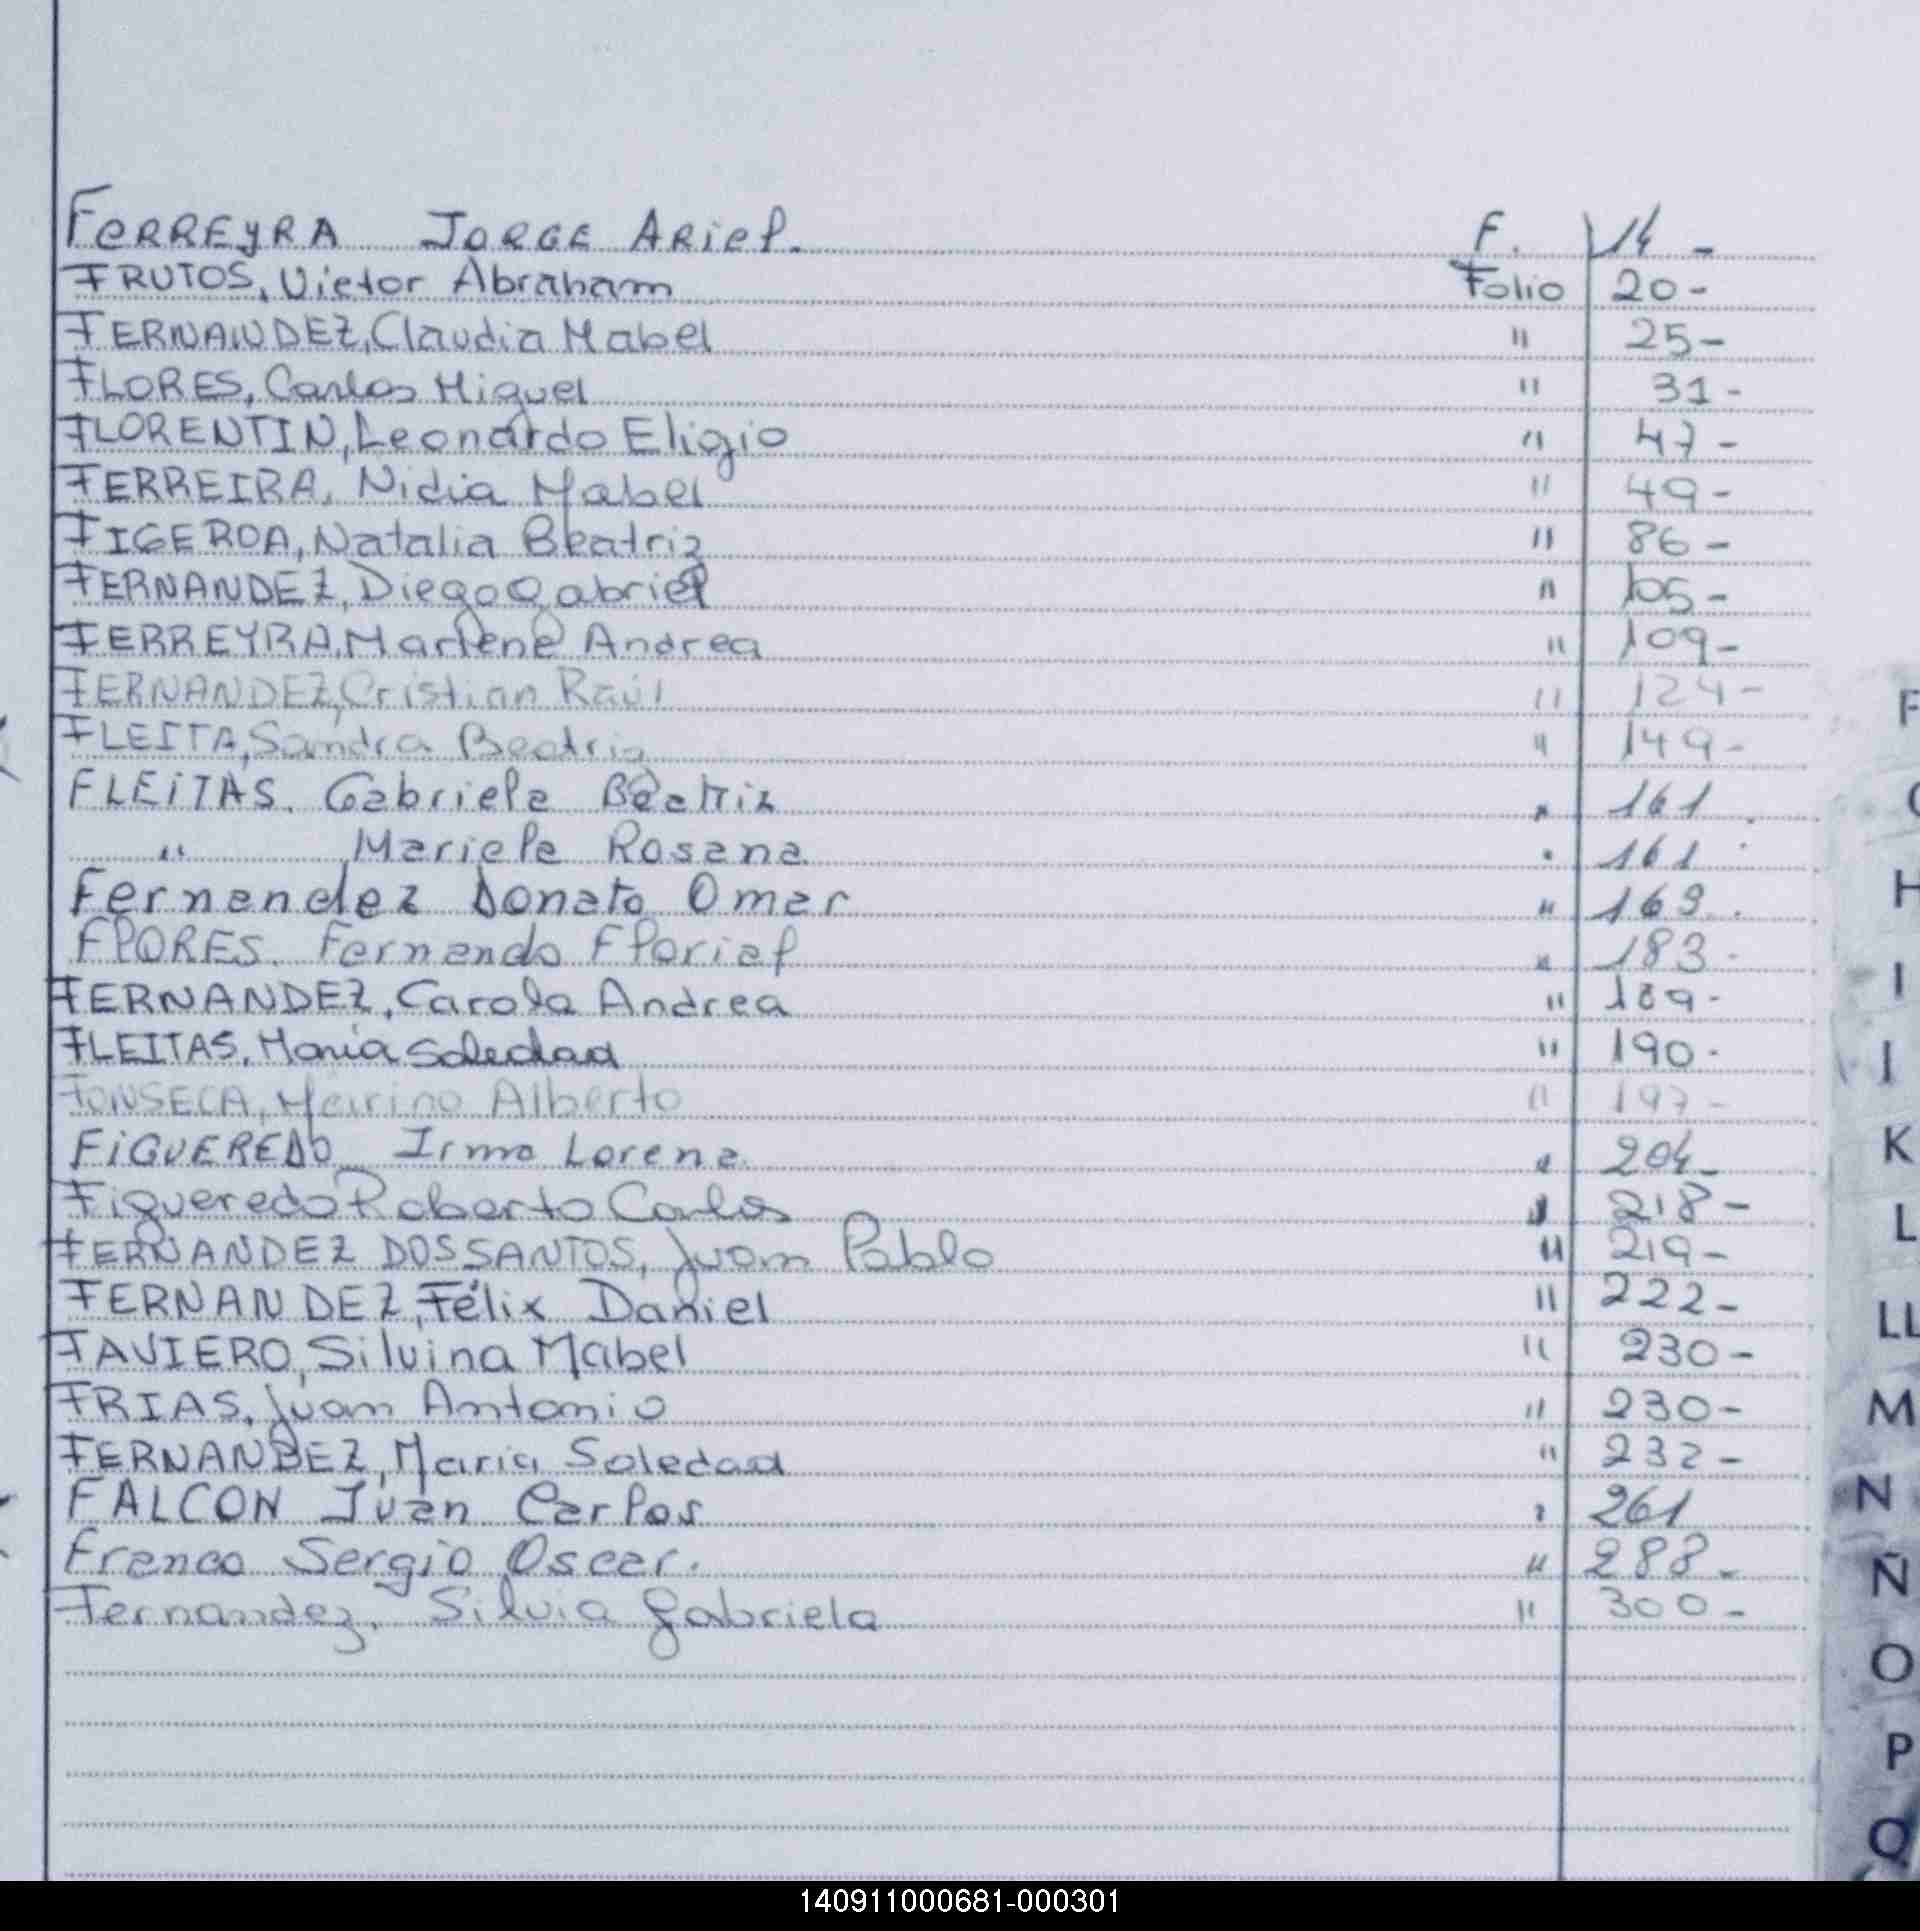 FERREYRA JORGE ARIEL. F. 14 -
FRUTOS, Victor Abraham Folio 20-
FERNANDEZ, Claudia Mabel " 25-
FLORES, Carlos Miguel " 31-
FLORENTIN, Leonardo Eligio " 47-
FERREIRA, Nidia Mabel " 49-
FIGEROA, Natalia Beatriz " 86-
FERNANDEZ, Diego Gabriel " 105-
FERREYRA, Marlene Andrea " 109-
FERNANDEZ, Cristian Raúl " 124-
FLEITA, Sandra Beatriz " 149-
FLEITAS. Gabriela Beatriz " 161.
" Mariela Rosana " 161.
Fernandez Donato Omar " 169.
FLORES. Fernando Floriel " 183-
FERNANDEZ, Carola Andrea " 189-
FLEITAS, María Soledad " 190-
FONSECA, Marino Alberto " 197-
FIGUEREDO Irma Lorena " 204-
Figueredo Roberto Carlos " 218-
FERNANDEZ DOSSANTOS, Juan Pablo " 219-
FERNANDEZ, Félix Daniel " 222-
FAVIERO, Silvina Mabel " 230-
FRIAS, Juan Antonio " 230-
FERNANDEZ, María Soledad " 232-
FALCON Juan Carlos " 261
Franco Sergio Oscar. " 288-
Fernandez, Silvia Gabriela " 300-
F
H
I
J
K
L
LL
M
N
Ñ
O
P
Q
140911000681-000301